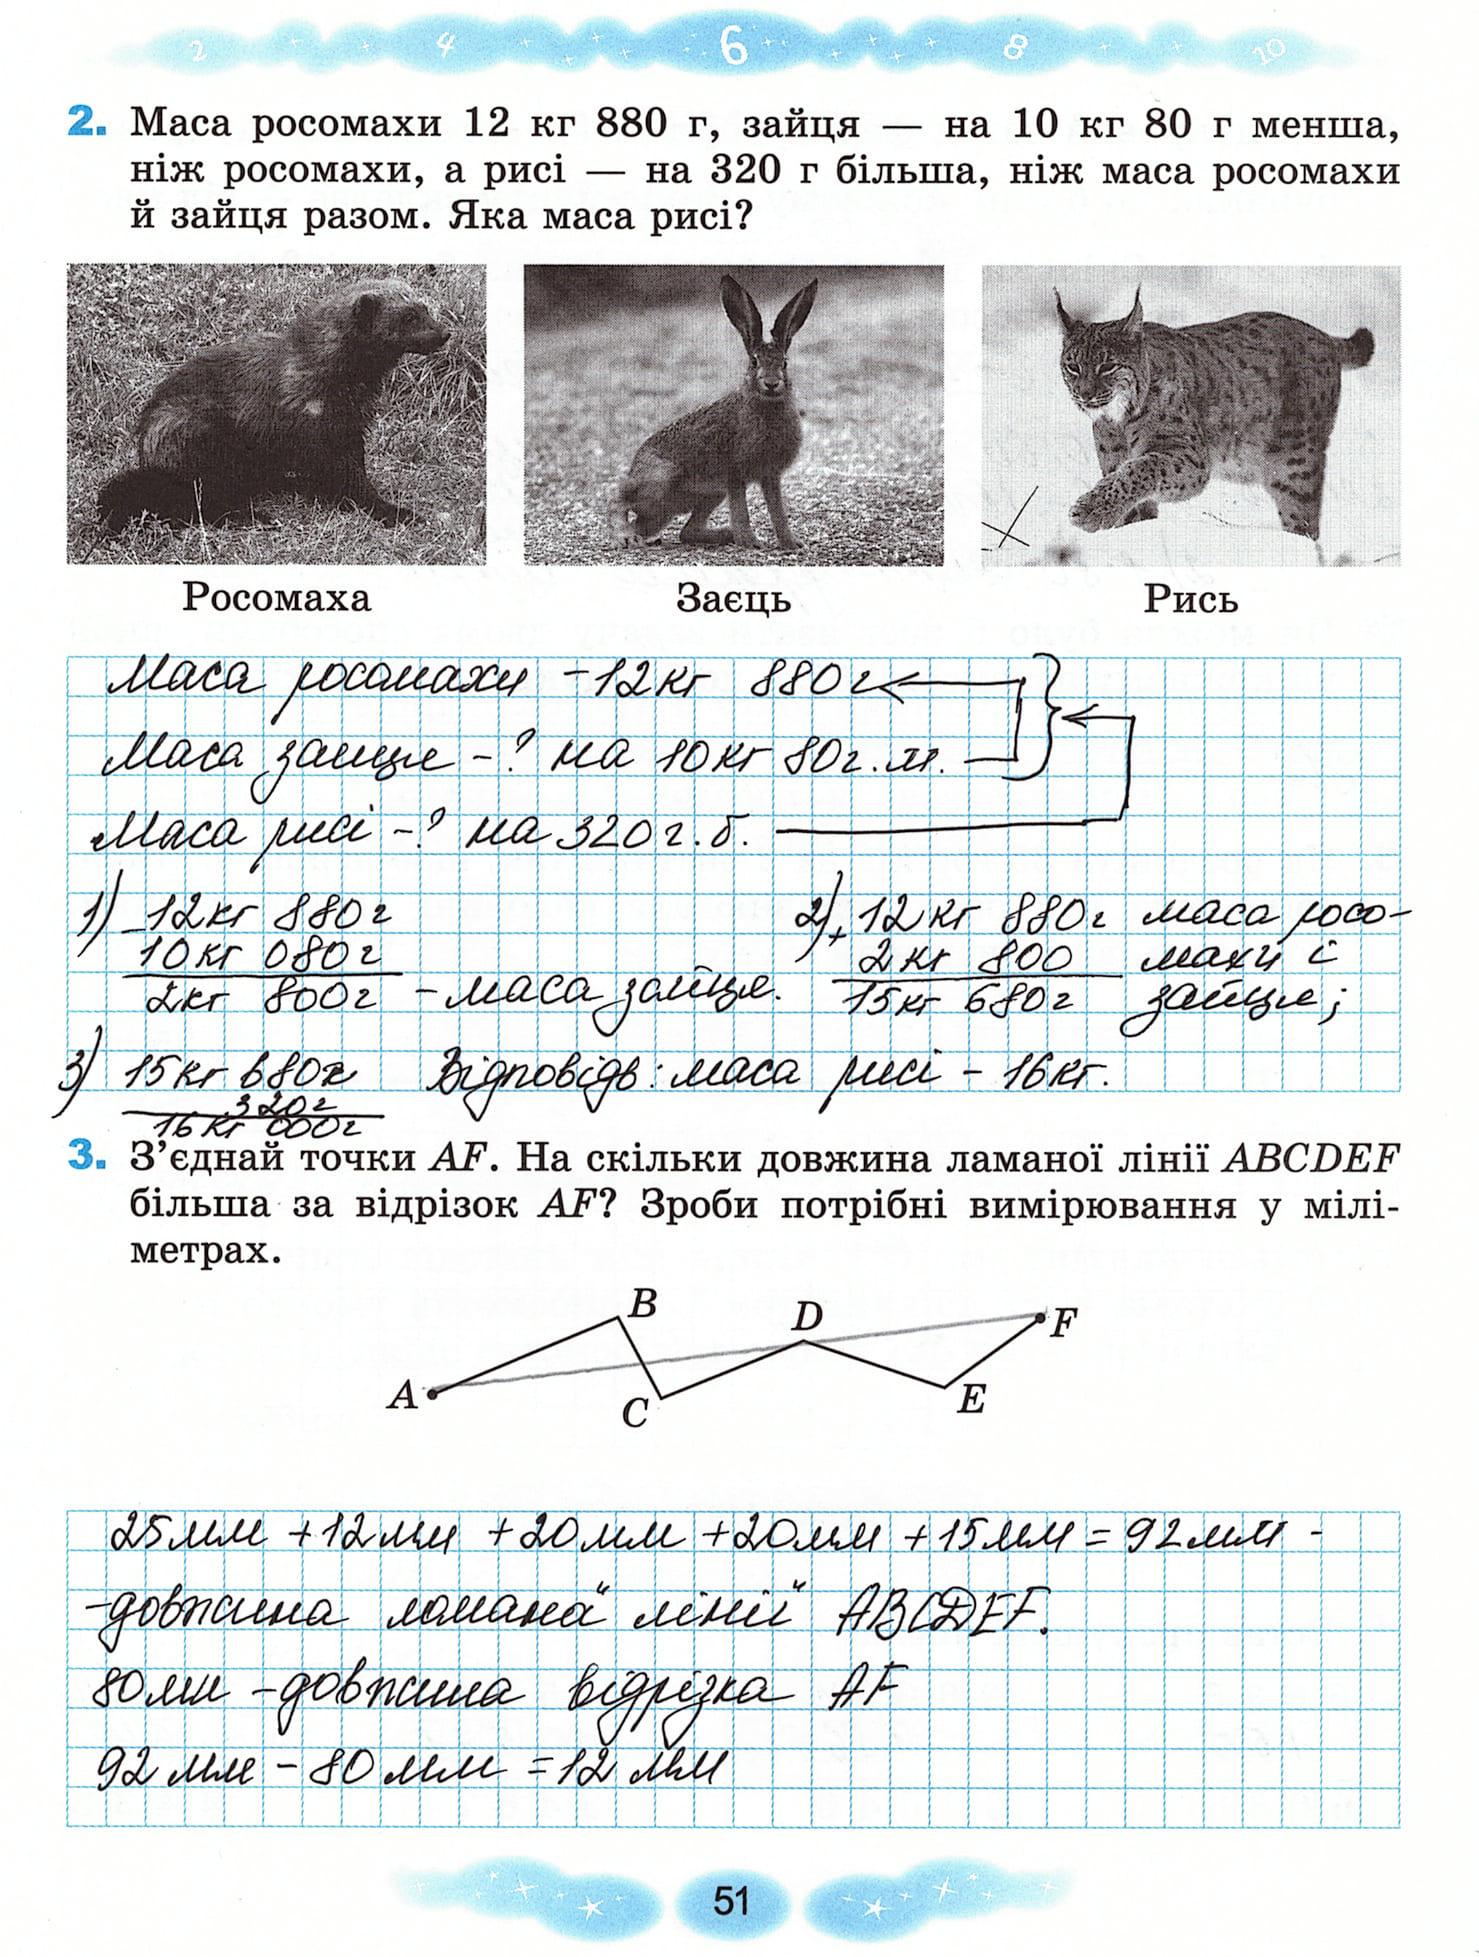 2 4 6 8 10
2. Маса росомахи 12 кг 880 г, зайця — на 10 кг 80 г менша,
ніж росомахи, а рисі — на 320 г більша, ніж маса росомахи
й зайця разом. Яка маса рисі?
Росомаха Заєць Рись
Маса росомахи - 12кг 880г
Маса зайця - ? на 10кг 80г.м.
Маса рисі - ? на 320г.б.
1) - 12кг 880г 2) + 12кг 880г маса росо-
10кг 080г 2кг 800 махи і
2кг 800г - маса зайця. 15кг 680г зайця;
3) 15кг 680г Відповідь: маса рисі - 16кг.
320г
16кг 000г
3. З’єднай точки AF. На скільки довжина ламаної лінії ABCDEF
більша за відрізок AF? Зроби потрібні вимірювання у мілі-
метрах.
B
D
F
A
C
E
25мм + 12мм + 20мм + 20мм + 15мм = 92мм -
- довжина ламаної лінії ABCDEF.
80мм - довжина відрізка AF
92мм - 80мм = 12мм
51